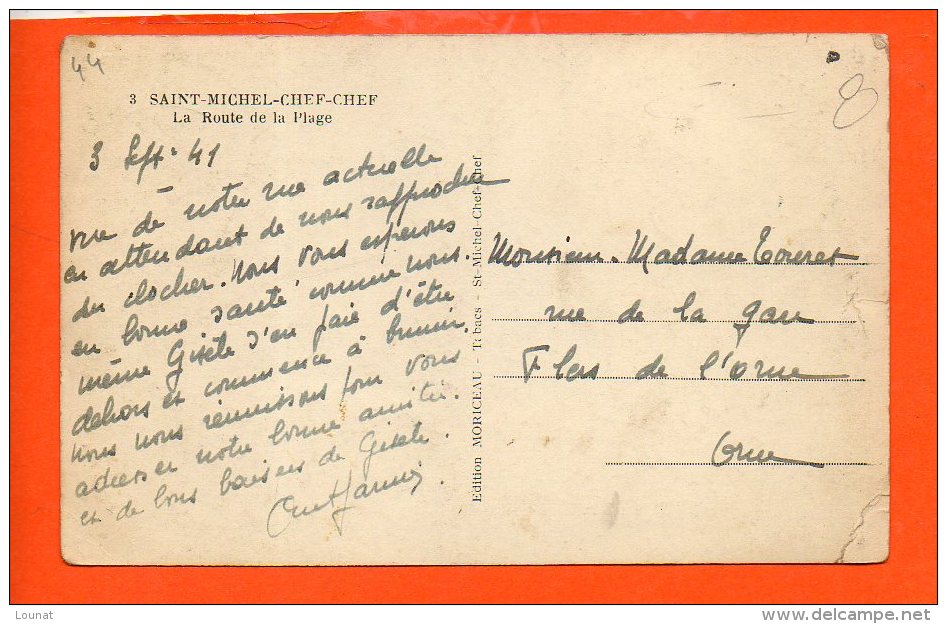 44
3 SAINT-MICHEL-CHEF-CHEF
La Route de la Plage
3 Sept. 41
vue de notre rue actuelle
en attendant de nous rapprocher
du clocher. Nous vous espérons
en bonne santé comme nous.
même Gisèle s'en paie d'être
dehors et commence à brunir.
Nous nous réunissons pour vous
adresser notre bonne amitié.
et de bons baisers de Gisèle.
Edition MORICEAU - Tabacs - St-Michel-Chef-Chef
Monsieur. Madame Touret
rue de la gare
Flers de l'Orne
Orne
Lounat
www.delcampe.net